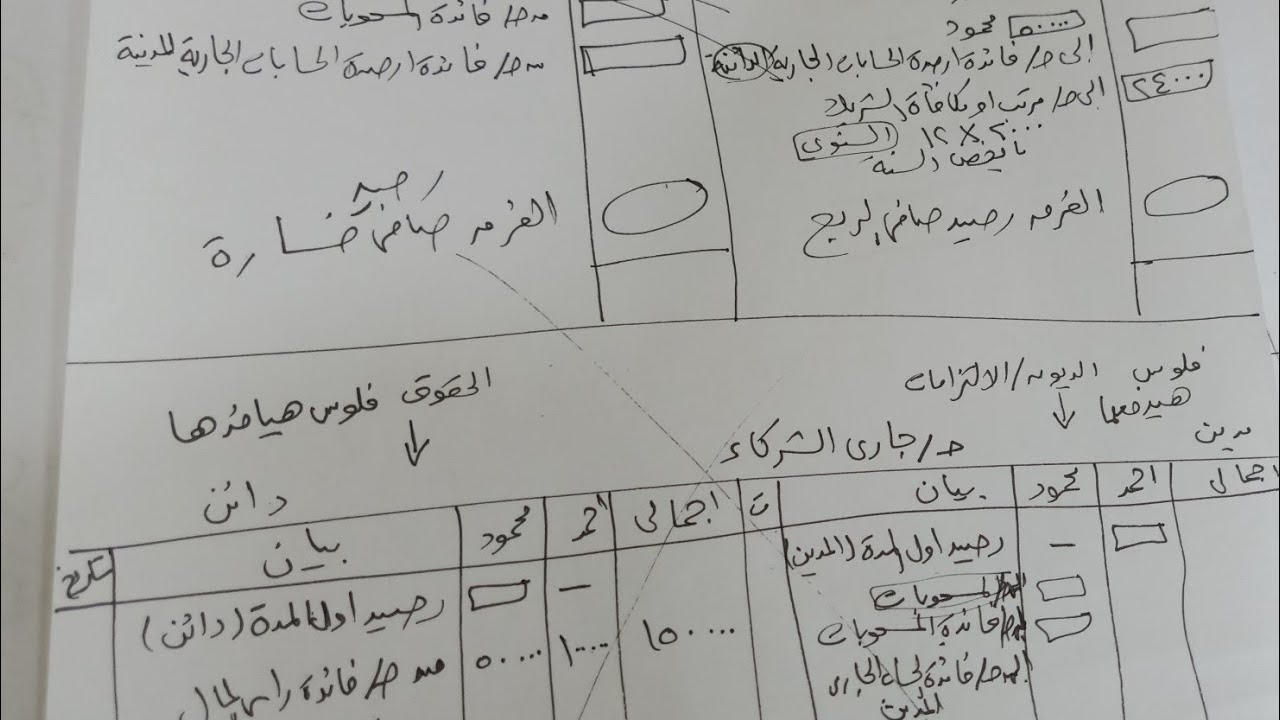 ٥٠٠٠٠ محمود
الى ح/ فائدة ارصدة الحسابات الجارية الدائنة
٢٤٠٠٠ الى ح/ مرتب او مكافأة الشريك
٢٠٠٠ X ١٢ السنوى
ما يخص السنة
الفرق رصيد صافى الربح
من ح/ فائدة المسحوبات
من ح/ فائدة ارصدة الحسابات الجارية المدينة
رصيد
الفرق صافى خسارة
فلوس الديون/الالتزامات
هيدفعها ↓
الحقوق فلوس هياخدها
↓
مدين
ح/ جارى الشركاء
دائن
اجمالى احمد محمود بيان ت
اجمالى احمد محمود بيان تاريخ
رصيد اول المدة (المدين)
—
المسحوبات
فائدة المسحوبات
الى ح/ فائدة الحساب الجارى
المدين
— رصيد اول المدة (دائن)
١٥٠٠٠٠ ١٠٠٠٠٠ ٥٠٠٠٠ من ح/ فائدة راس المال